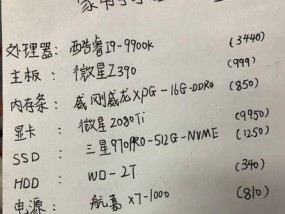 处理器: 酷睿I9-9900k (3440)
主板: 微星Z390 (999)
内存条: 威刚威龙XPG-16G-DDR4 (850)
显卡: 微星2080Ti (9950)
SSD: 三星970PRO-512G-NVME (1250)
HDD: WD-2T (340)
电源: 航嘉X7-1000 (810)